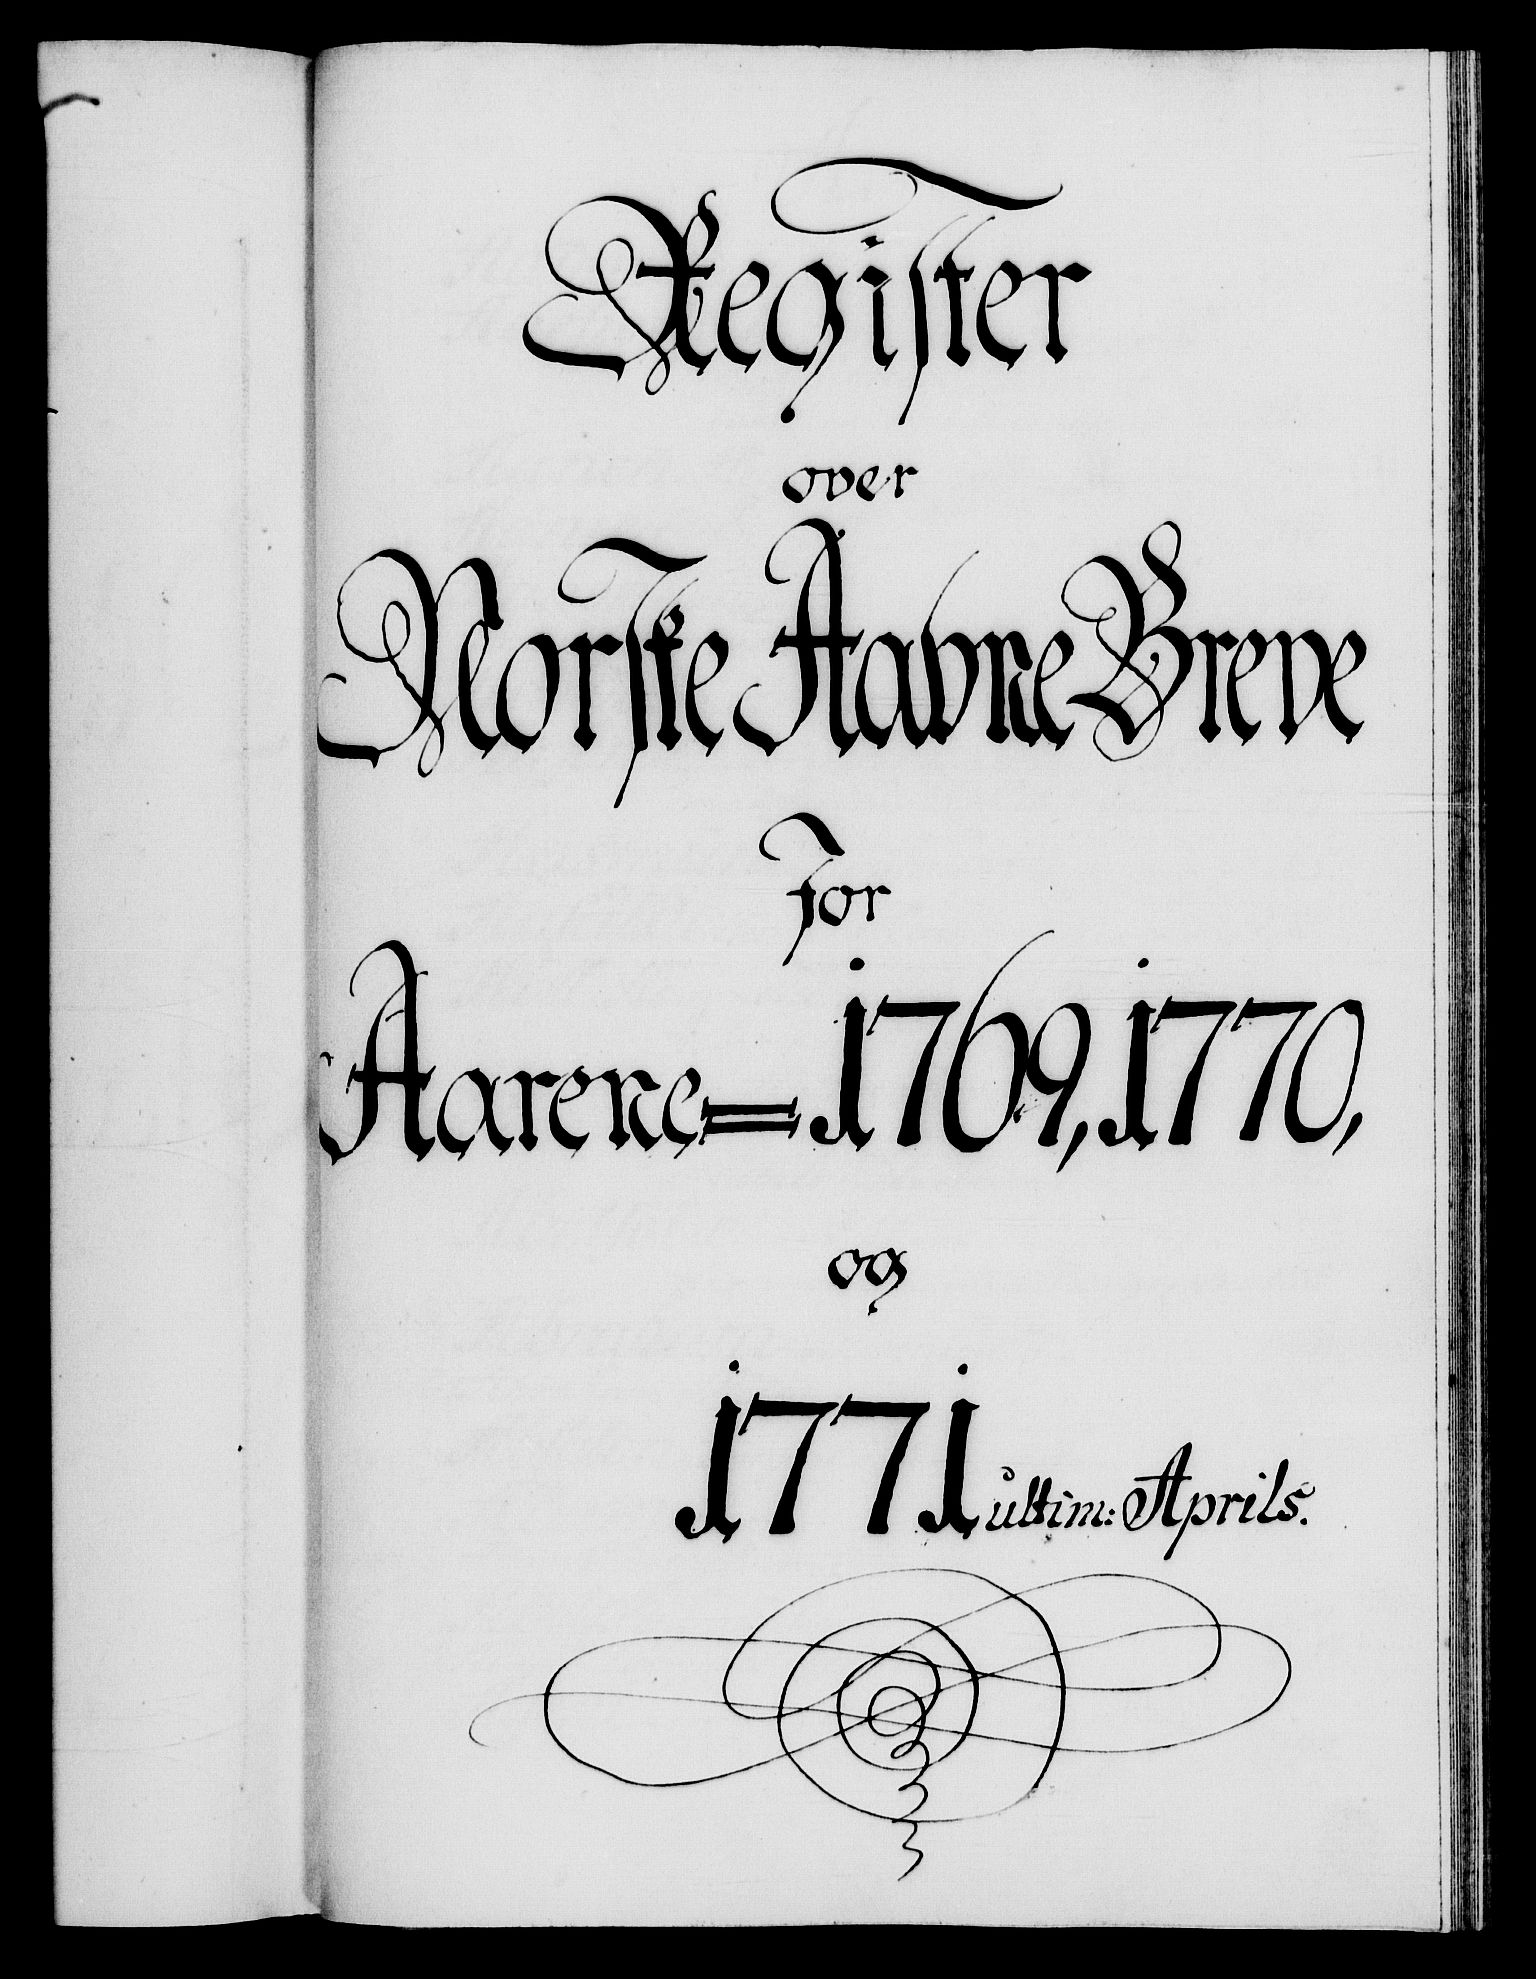 Register
over
Norske Aabne Breve
for
Aarene= 1769, 1770,
og
1771 ultim: Aprils.